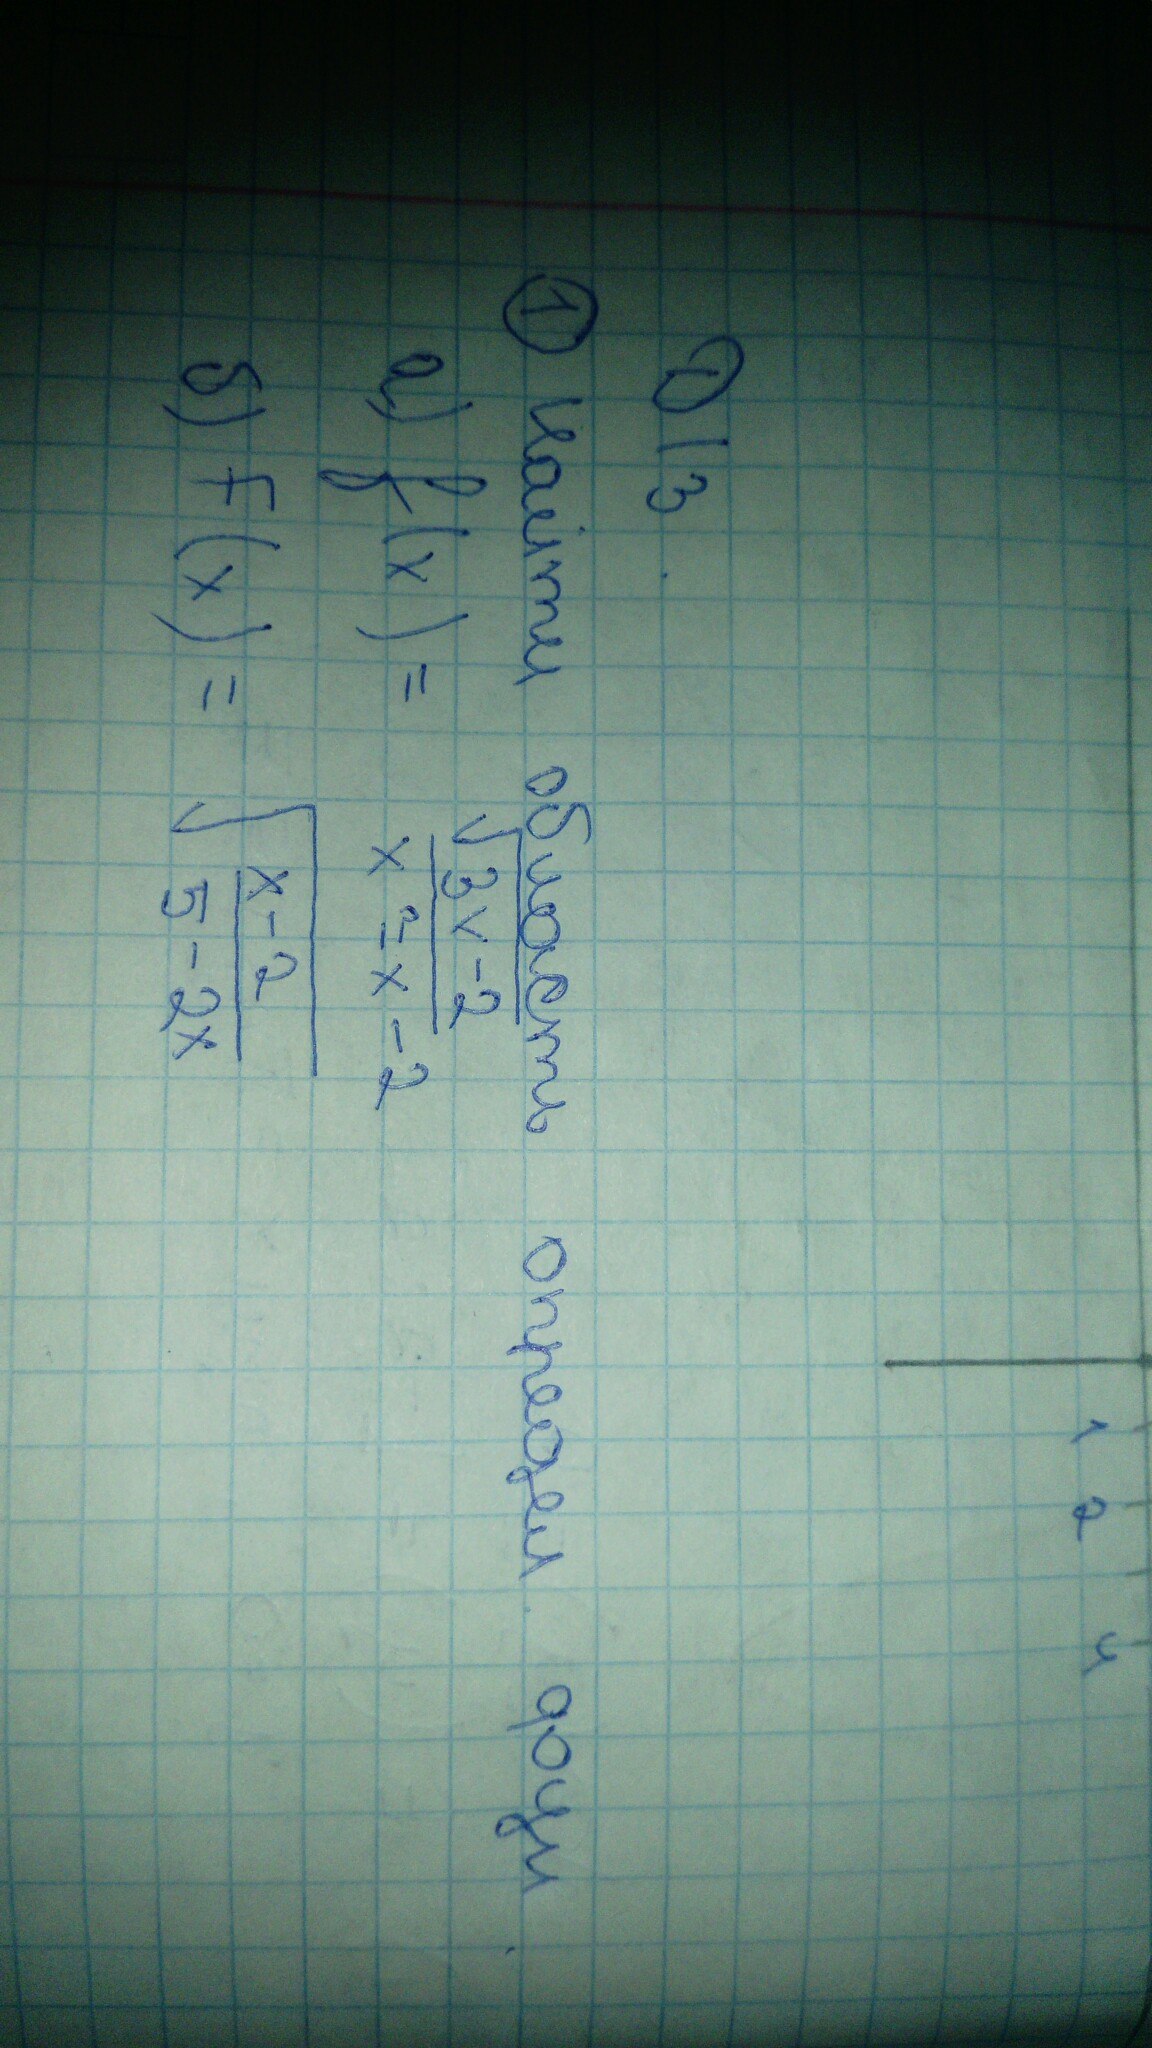 Д/З.
① Найти область определ. функ.
а) f(x) = √3x-2 / x²-x-2
б) F(x) = √x-2 / 5-2x
1 2 4